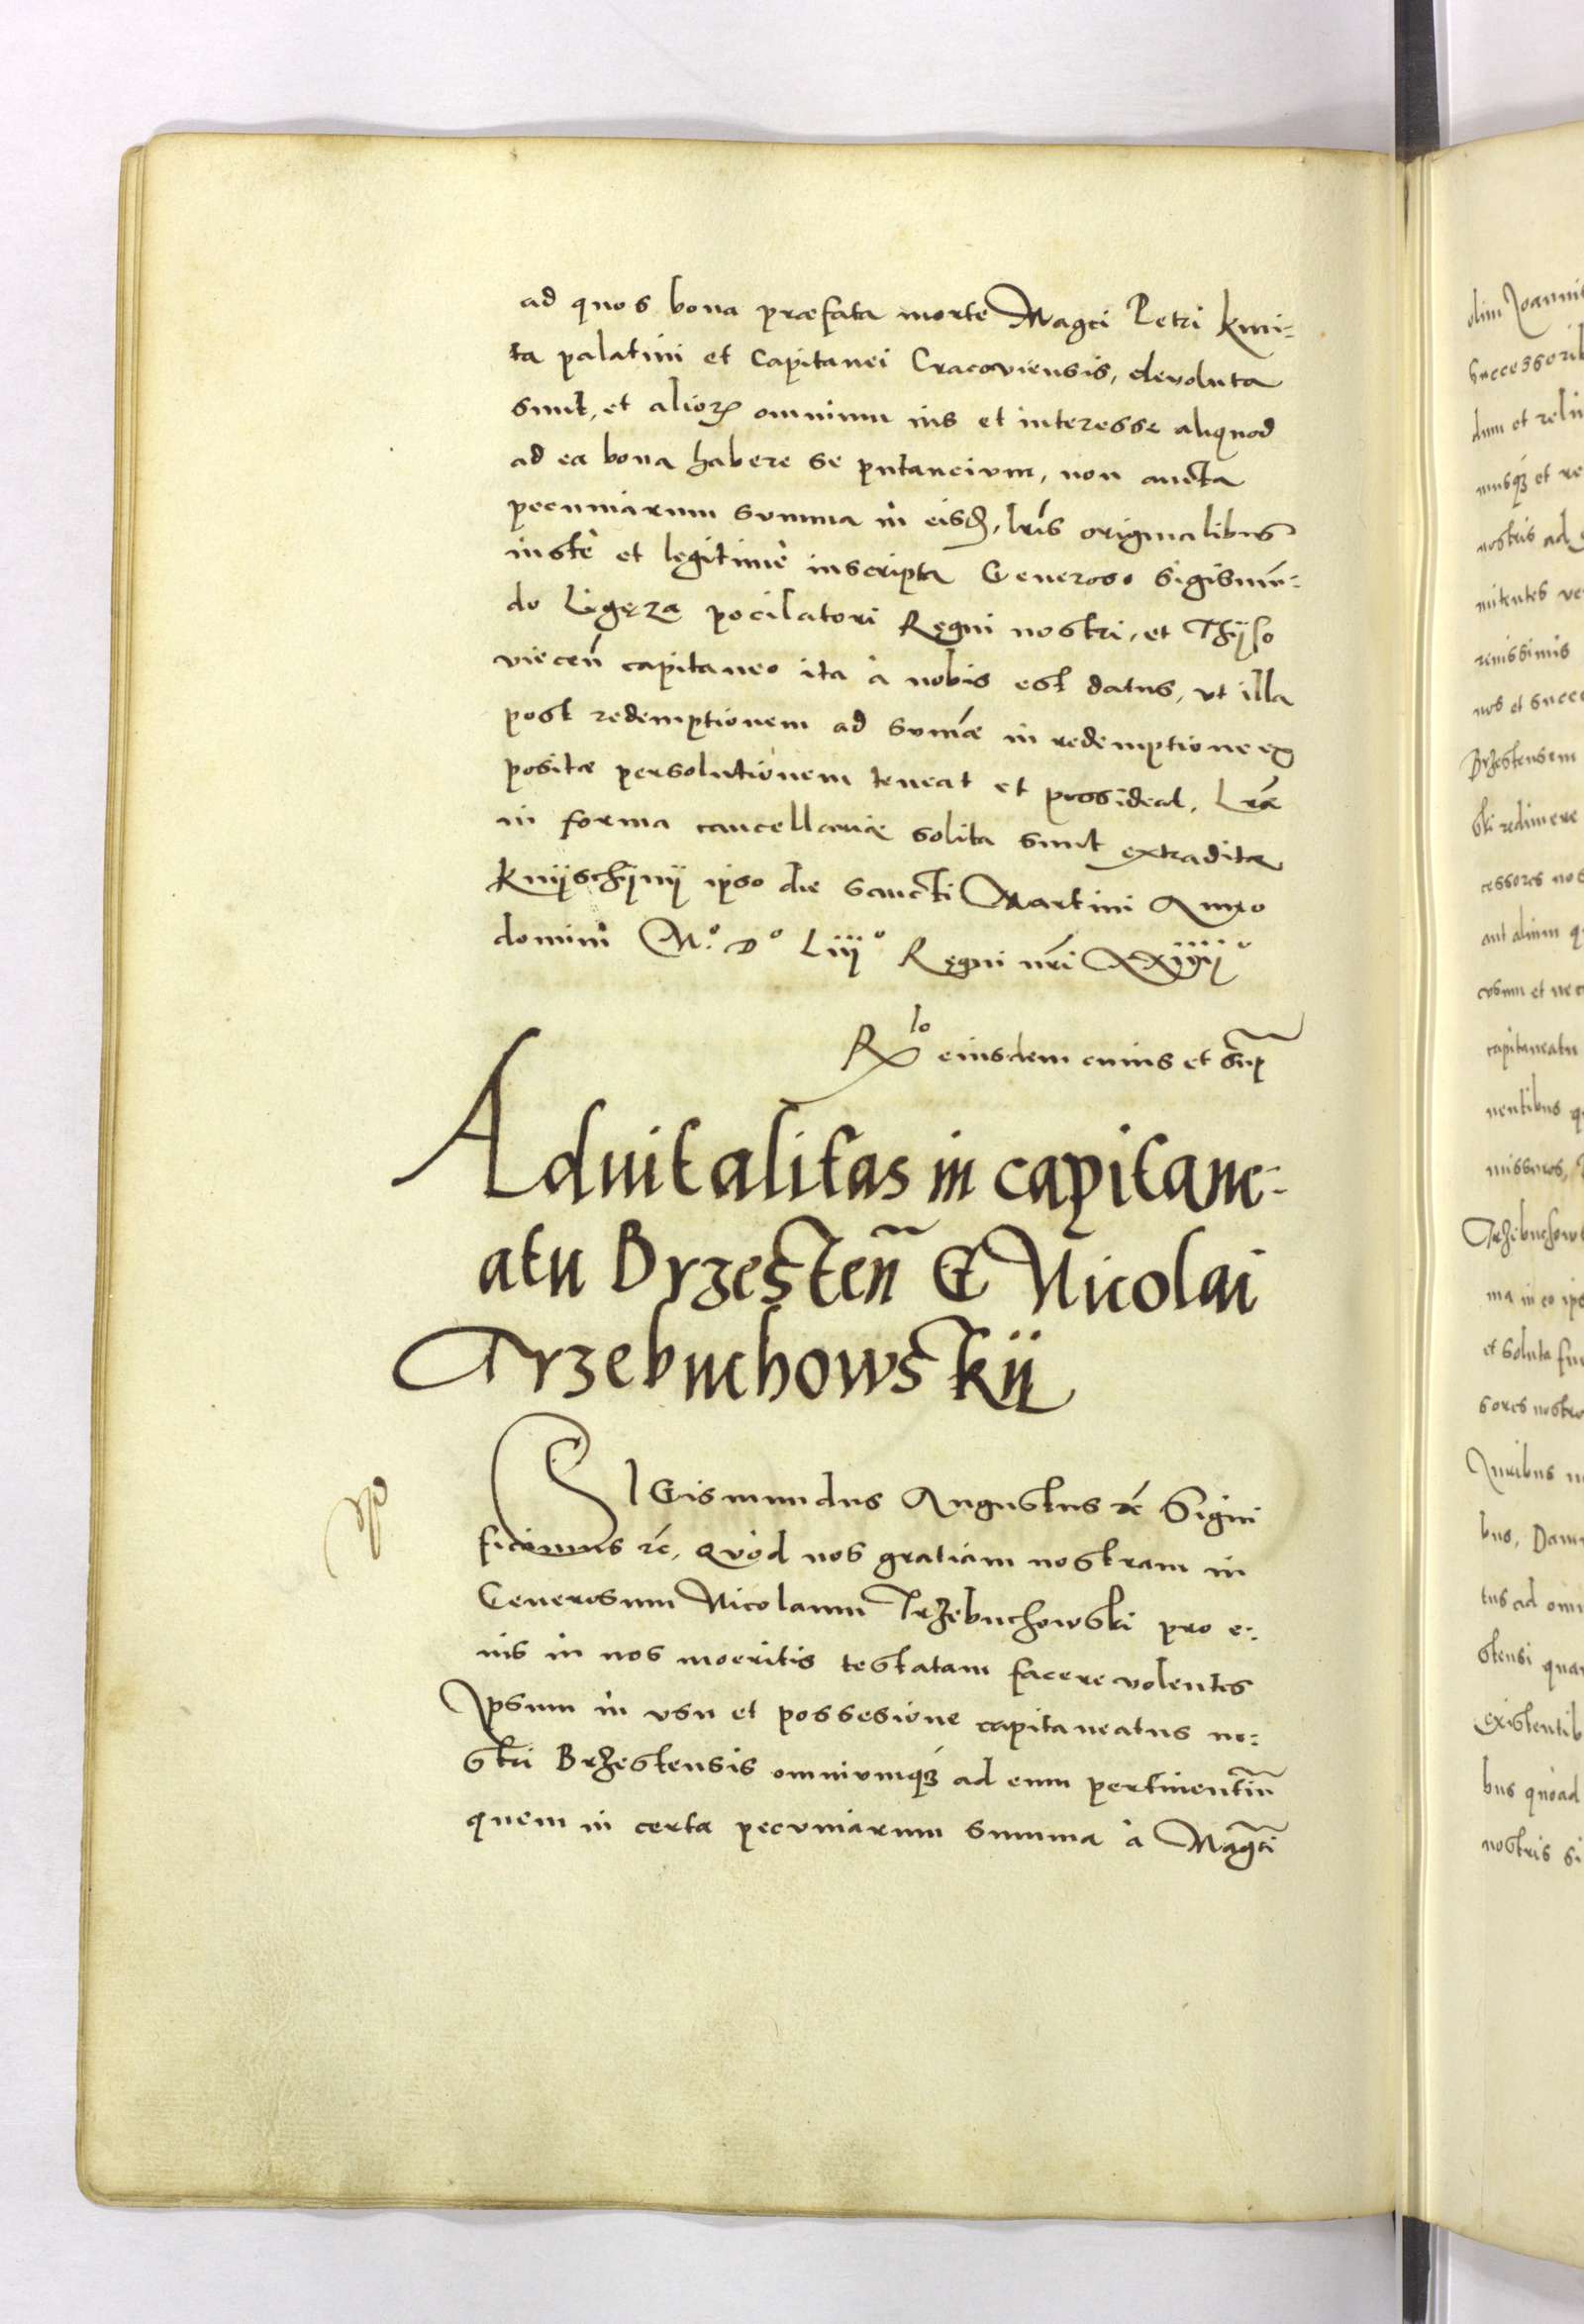 ad quos bona præfata morte Magci Petri Kmi-
ta palatini et Capitanei Cracoviensis, devoluta
sunt, et alioꝝ omnium ius et interesse aliquod
ad ea bona habere se putancium, non aucta
pecuniarum summa in eisd, lris originalibus
iustè et legitimè inscripta Generoso Sigismun-
do Ligęza pocilatori Regni nostri, et Thijso
viecen̄ capitaneo ita à nobis est datus, ut illa
post redemptionem ad sum̄æ in redemptione ex
positæ persolutionem teneat et possideat. Lræ
in forma cancellariæ solita sunt extraditæ
Knijschijnij ipso die Sancti Martini Anno
domini Mo. Do Liijo Regni nri XXiiijo
Rlo eiusdem cuius et sup
Aduitalitas in capitane-
atu Brzesten̄ G Nicolai
Trzebuchowskij
SIGismundus Augustus rc̄ Signi
ficamus rc̄, Quòd nos gratiam nostram in
Generosum Nicolaum Trzebuchowski pro e-
ius in nos moeritis testatam facere volentes
Ipsum in usu et possesione capitaneatus no-
stri Brzestensis omniumqꝫ ad eum pertinentiū
quem in certa pecuniarum summa à Magci
olim Joannis
Successorib
dum et reli
nostris ad
mitentes ve
renissimis
nos et succe
Brzestensem
ski redimere
cessores nos
aut alium q
capitaneatu
nentibus q
missores,
Trzebuchowsk
ma in eo ips
et soluta fu
sores nostro
Juribus n
bus, Dam
tus ad omn
stensi qua
Existentib
bus quoad
nostris si